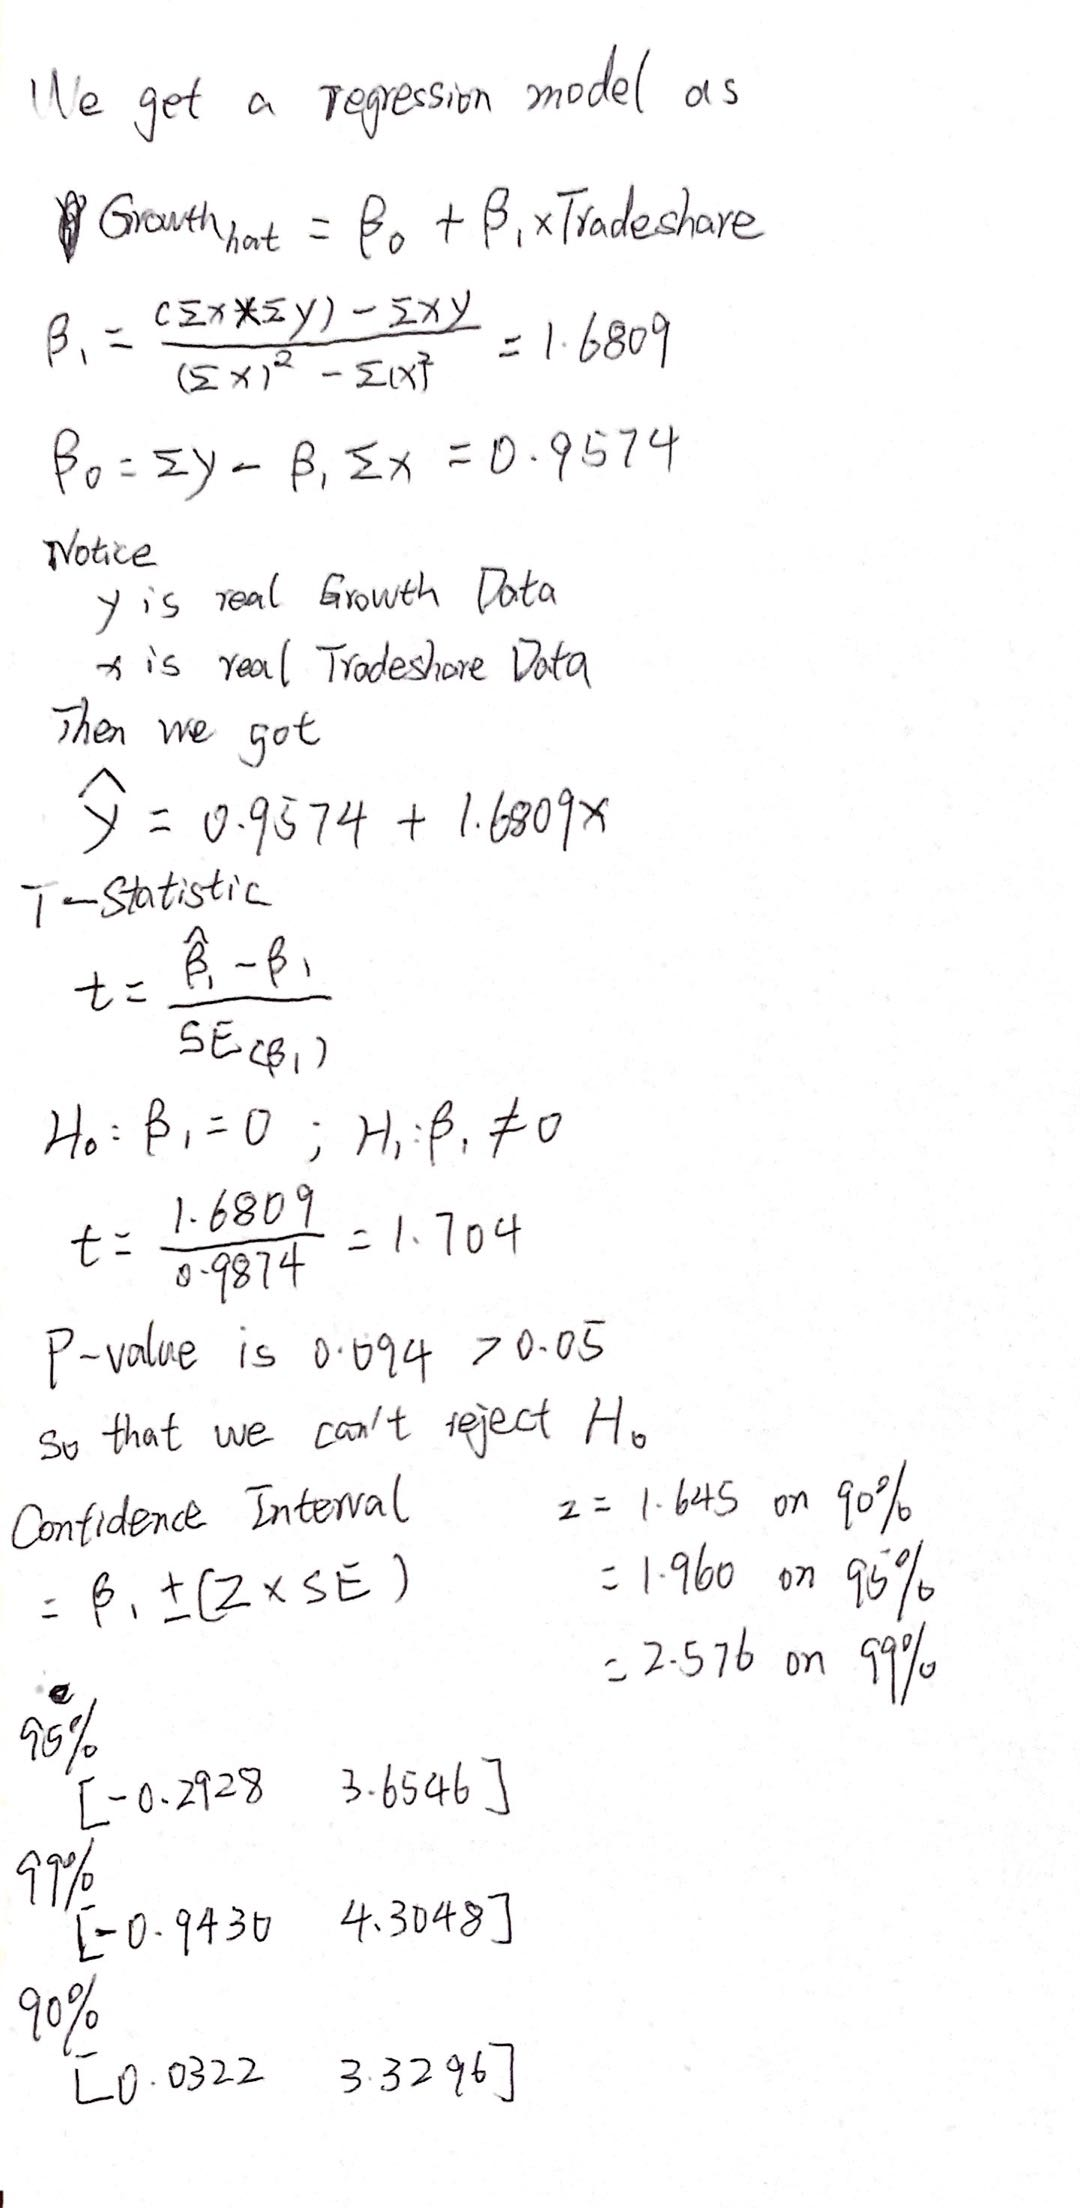 We get a regression model as
Growth hat = β₀ + β₁ × Tradeshare
β₁ = (Σx*Σy) - Σxy / (Σx)² - Σ(x)² = 1.6809
β₀ = Σy - β₁ Σx = 0.9574
Notice
y is real Growth Data
x is real Tradeshare Data
Then we got
ŷ = 0.9574 + 1.6809x
T-Statistic
t = β̂₁ - β₁ / SE(β₁)
H₀: β₁ = 0 ; H₁: β₁ ≠ 0
t = 1.6809 / 0.9874 = 1.704
P-value is 0.094 > 0.05
so that we can't reject H₀
Confidence Interval
= β₁ ± (Z × SE)
z = 1.645 on 90%
= 1.960 on 95%
= 2.576 on 99%
95%
[-0.2928 3.6546]
99%
[-0.9430 4.3048]
90%
[0.0322 3.3296]